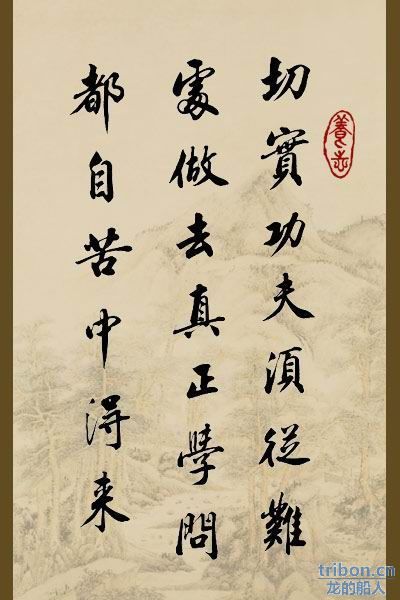 養志
切實功夫須從難
處做去真正學問
都自苦中得来
tribon.cn
龙的船人